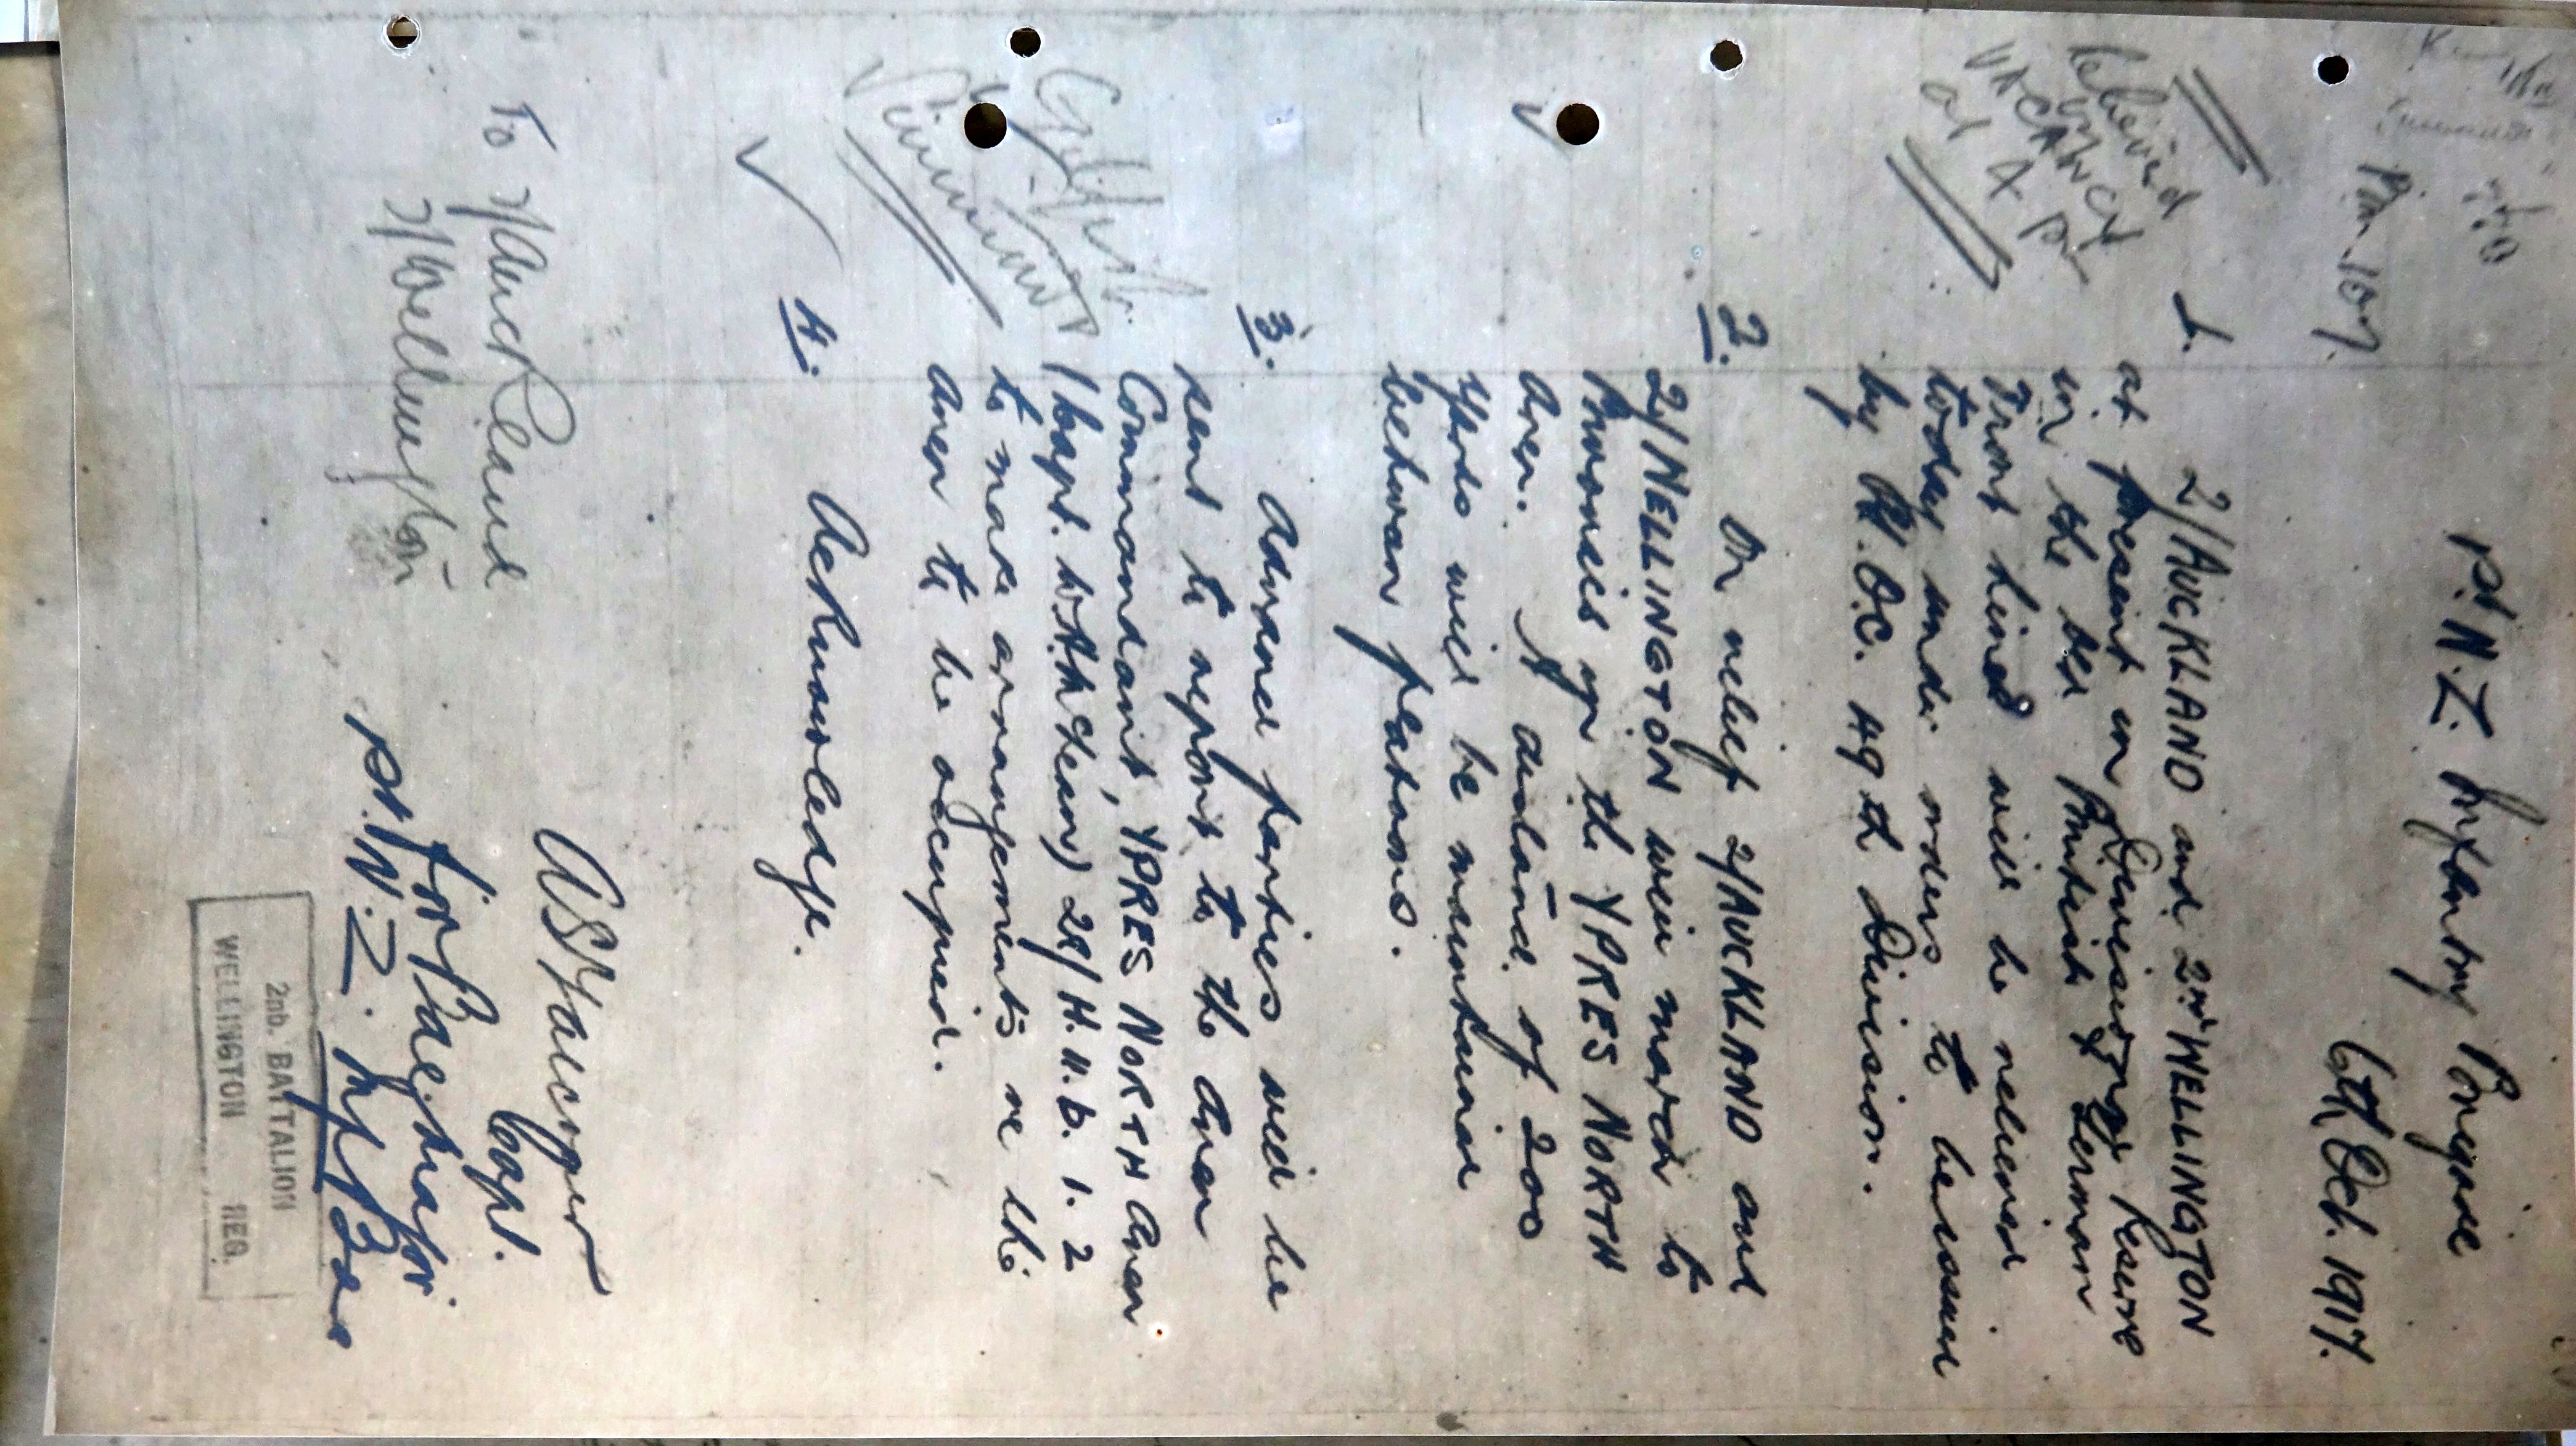 1st. N.Z. Infantry Brigade
Bm 107. 6th Oct. 1917.
1. 2/AUCKLAND and 2nd WELLINGTON
at present in Divisional Reserve
in the old British & German
Front Lines will be relieved
today under orders to be issued
by G.O.C. 49th Division.
Relieved
VACANCY
at 4 pm
2. On relief 2/AUCKLAND and
2/WELLINGTON will march to
Bivouacs in the YPRES NORTH
Area. A distance of 200
yards will be maintained
between platoons.
3. Advance parties will be
sent to report to the Area
Commandant, YPRES NORTH Area
(Capt. ) 28/H.11.b.1.2
to make arrangements re the
area to be occupied.
4. Acknowledge.
Capt.
for Brig. Major.
1st. N.Z. Inf Bde
To 2/Auckland
2/Wellington
2nd. BATTALION
WELLINGTON REG.